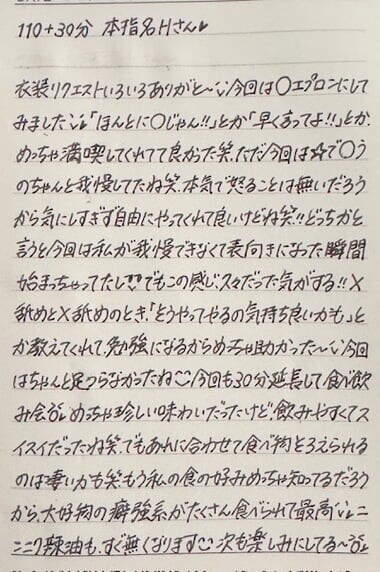 110+30分 本指名Hさん♥
衣装リクエストいろいろありがと〜 今回は〇エプロンにして
みました 「ほんとに〇じゃん!!」とか「早く言ってよ!!」とか、
めっちゃ満喫してくれてて良かった笑、ただ今回は☆で〇う
のちゃんと我慢してたね笑、本気で怒ることは無いだろう
から気にしすぎず自由にやってくれて良いけどね笑!!どっちかと
言うと今回は私が我慢できなくて表向きになった瞬間
始まっちゃってたし でもこの感じ、久々だった気がする!! X
舐めとX舐めのとき、「どうやってやるの気持ち良いかも」と
か教えてくれて、勉強になるからめちゃ助かった〜 今回
はちゃんと足つらなかったね 今回も30分延長して食べ飲
み会 めっちゃ珍しい味わいだったけど、飲みやすくてス
イスイだったね笑、でもあれに合わせて食べ物そろえられる
のは凄いかも笑もう私の食の好みめっちゃ知ってるだろう
から、大好物の癖強系がたくさん食べられて最高 ニ
ンニク辣油も、すぐ無くなります 次も楽しみにしてる〜